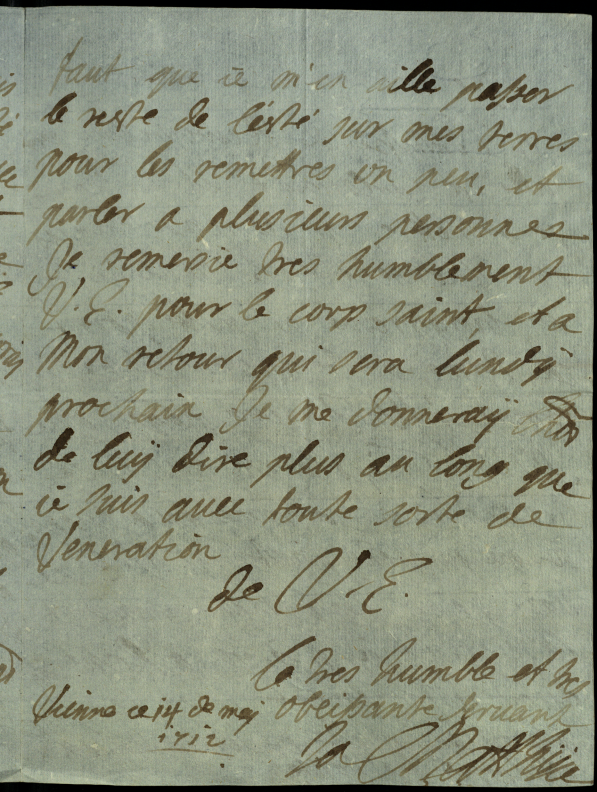 faut que ie m'en aille passer
le reste de l'esté sur mes terres
pour les remettres un peu, et
parler a plusieurs personnes
Je remersie tres humblement
V. E. pour le corp saint, et a
Mon retour qui sera lundÿ
prochain Je me donneraÿ
de luÿ dire plus au long que
ie suis avec toute sorte de
Veneration
de V. E.
le tres humble et tres
obeissante servant
Vienne ce 14 de meÿ
1712